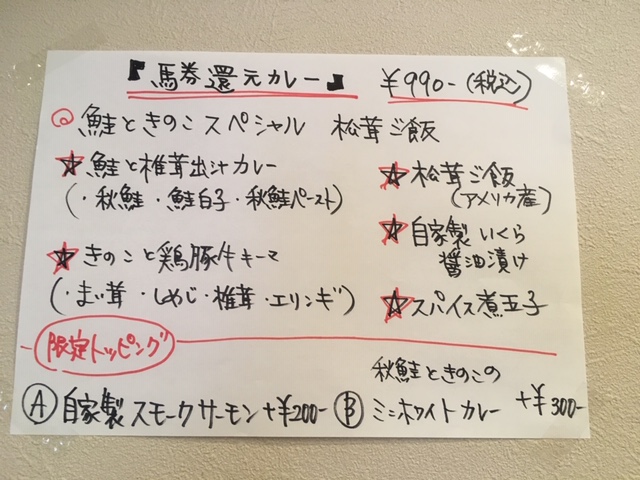 『馬券還元カレー』 ¥990-(税込)
◎鮭ときのこスペシャル 松茸ご飯
☆鮭と椎茸出汁カレー
(・秋鮭・鮭白子・秋鮭ペースト)
☆きのこと鶏豚牛キーマ
(・まい茸・しめじ・椎茸・エリンギ)
☆松茸ご飯
(アメリカ産)
☆自家製いくら
醤油漬け
☆スパイス煮玉子
限定トッピング
Ⓐ自家製スモークサーモン+¥200-
Ⓑ秋鮭ときのこの
ミニホワイトカレー +¥300-